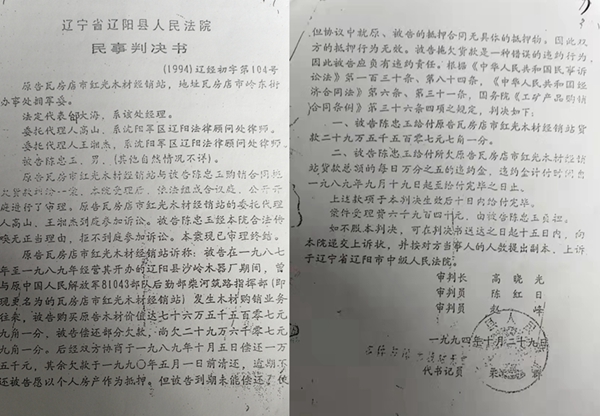 辽宁省辽阳县人民法院
民事判决书
(1994)辽经初字第104号
原告瓦房店市红光木材经销站，地址瓦房店市岭东街
办事处拥军委。
法定代表邹大海，系该处经理。
委托代理人高山，系沈阳军区辽阳法律顾问处律师。
委托代理人王淑杰，系沈阳军区辽阳法律顾问处律师。
被告陈忠玉，男，(其他自然情况不详)。
原告瓦房店市红光木材经销站与被告陈忠玉购销合同拖
欠货款纠纷一案，本院受理后，依法组成合议庭，公开开
庭进行了审理。原告瓦房店市红光木材经销站的委托代理
人高山，王淑杰到庭参加诉讼。被告陈忠玉经本院合法传
唤无正当理由，拒不到庭参加诉讼。本案现已审理终结。
原告瓦房店市红光木材经销站诉称：被告在一九八七
年至一九八九年经营其开办的辽阳县沙岭木器厂期间，曾
与原中国人民解放军81043部队后勤部柴河筑路指挥部(即
现更名为的瓦房店市红光木材经销站)发生木材购销业务
往来，被告购买原告木材价值达七十六万五千五百零七元
九角一分，被告偿还部分欠款，尚欠二十九万六千零七元
九角一分。后经双方协商于一九八九年十月五日偿还一万
五千元，其余欠款于一九九〇年五月一日前清还，逾期不
还被告愿以个人房产作为抵押。但被告到期未能偿还了
但协议中就原、被告的抵押合同无具体的抵押物，因此双
方的抵押行为无效。被告拖欠贷款是一种错误的违约行为，
因此被告应负有违约责任。根据《中华人民共和国民事诉
讼法》第一百三十条、第八十四条，《中华人民共和国经
济合同法》第六条、第三十一条，国务院《工矿产品购销
合同条例》第三十六条四项之规定，判决如下：
一、被告陈忠玉给付原告瓦房店市红光木材经销站货
款二十九万五千五百零七元九角一分。
二、被告陈忠玉给付所欠原告瓦房店市红光木材经销
站货款总额的每日万分之五的违约金，违约金计付时间自
一九八九年九月十九日起至给付完毕之日止。
上述款项于本判决生效后十日内给付完毕。
案件受理费六千九百四十元，由被告陈忠玉负担。
如不服本判决，可在判决书送达之日起十五日内，向
本院递交上诉状，并按对方当事人的人数提出副本，上诉
于辽宁省辽阳市中级人民法院。
审判长 高晓光
审判员 陈红日
审判员 赵峰
一九九四年十月二十九日
代书记员